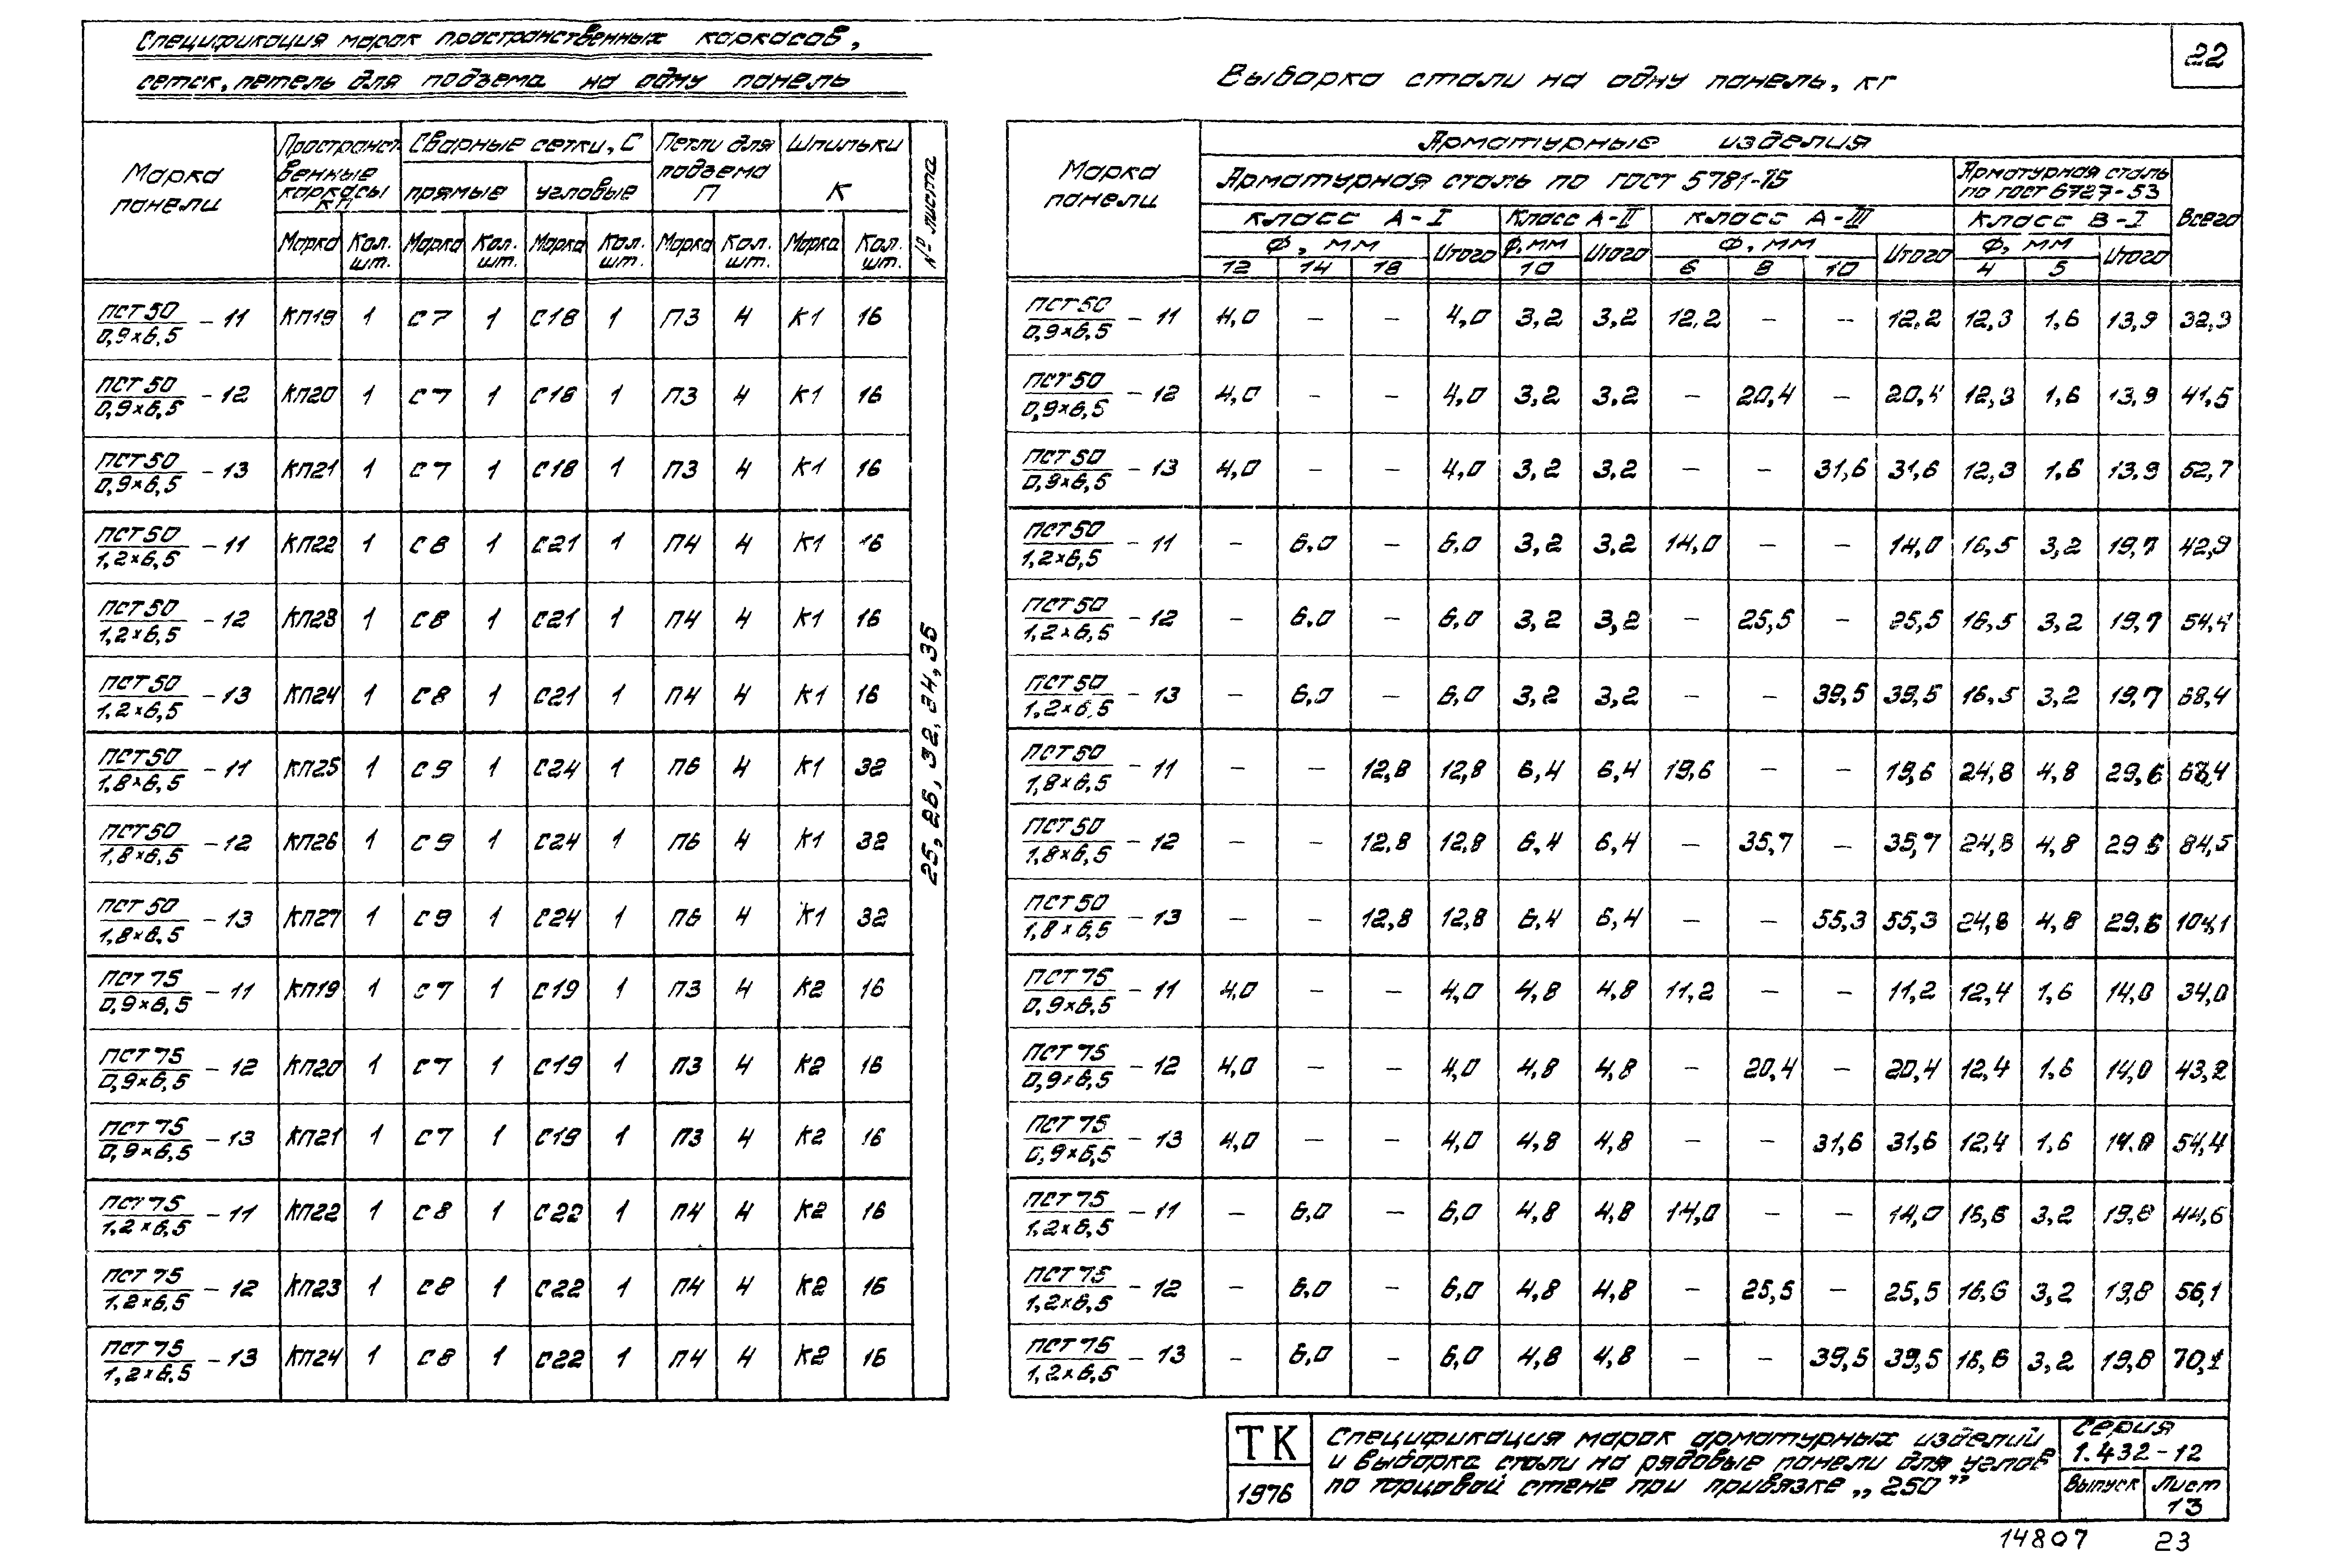 Спецификация марок пространственных каркасов,
сеток, петель для подъема на одну панель
Выборка стали на одну панель, кг
22
Марка панели | Пространственные каркасы КП | Сварные сетки, С | Петли для подъема П | Шпильки К | № листа
прямые | угловые
Марка | Кол. шт. | Марка | Кол. шт. | Марка | Кол. шт. | Марка | Кол. шт. | Марка | Кол. шт.
ПСТ50/0,9×6,5 - 11 | КП19 | 1 | С7 | 1 | С18 | 1 | П3 | 4 | К1 | 16
ПСТ50/0,9×6,5 - 12 | КП20 | 1 | С7 | 1 | С18 | 1 | П3 | 4 | К1 | 16
ПСТ50/0,9×6,5 - 13 | КП21 | 1 | С7 | 1 | С18 | 1 | П3 | 4 | К1 | 16
ПСТ50/1,2×6,5 - 11 | КП22 | 1 | С8 | 1 | С21 | 1 | П4 | 4 | К1 | 16
ПСТ50/1,2×6,5 - 12 | КП23 | 1 | С8 | 1 | С21 | 1 | П4 | 4 | К1 | 16
ПСТ50/1,2×6,5 - 13 | КП24 | 1 | С8 | 1 | С21 | 1 | П4 | 4 | К1 | 16
ПСТ50/1,8×6,5 - 11 | КП25 | 1 | С9 | 1 | С24 | 1 | П6 | 4 | К1 | 32
ПСТ50/1,8×6,5 - 12 | КП26 | 1 | С9 | 1 | С24 | 1 | П6 | 4 | К1 | 32
ПСТ50/1,8×6,5 - 13 | КП27 | 1 | С9 | 1 | С24 | 1 | П6 | 4 | К1 | 32
ПСТ75/0,9×6,5 - 11 | КП19 | 1 | С7 | 1 | С19 | 1 | П3 | 4 | К2 | 16
ПСТ75/0,9×6,5 - 12 | КП20 | 1 | С7 | 1 | С19 | 1 | П3 | 4 | К2 | 16
ПСТ75/0,9×6,5 - 13 | КП21 | 1 | С7 | 1 | С19 | 1 | П3 | 4 | К2 | 16
ПСТ75/1,2×6,5 - 11 | КП22 | 1 | С8 | 1 | С22 | 1 | П4 | 4 | К2 | 16
ПСТ75/1,2×6,5 - 12 | КП23 | 1 | С8 | 1 | С22 | 1 | П4 | 4 | К2 | 16
ПСТ75/1,2×6,5 - 13 | КП24 | 1 | С8 | 1 | С22 | 1 | П4 | 4 | К2 | 16
25, 26, 32, 34, 35
Марка панели | Арматурные изделия
Арматурная сталь по ГОСТ 5781-75 | Арматурная сталь по ГОСТ 6727-53 | Всего
Класс А-I | Класс А-II | Класс А-III | Класс В-I
Ф, мм | Итого | Ф, мм | Итого | Ф, мм | Итого | Ф, мм | Итого
12 | 14 | 18 | 10 | 6 | 8 | 10 | 4 | 5
ПСТ50/0,9×6,5 - 11 | 4,0 | – | – | 4,0 | 3,2 | 3,2 | 12,2 | – | – | 12,2 | 12,3 | 1,6 | 13,9 | 32,3
ПСТ50/0,9×6,5 - 12 | 4,0 | – | – | 4,0 | 3,2 | 3,2 | – | 20,4 | – | 20,4 | 12,3 | 1,6 | 13,9 | 41,5
ПСТ50/0,9×6,5 - 13 | 4,0 | – | – | 4,0 | 3,2 | 3,2 | – | – | 31,6 | 31,6 | 12,3 | 1,6 | 13,9 | 52,7
ПСТ50/1,2×6,5 - 11 | – | 6,0 | – | 6,0 | 3,2 | 3,2 | 14,0 | – | – | 14,0 | 16,5 | 3,2 | 19,7 | 42,9
ПСТ50/1,2×6,5 - 12 | – | 6,0 | – | 6,0 | 3,2 | 3,2 | – | 25,5 | – | 25,5 | 16,5 | 3,2 | 19,7 | 54,4
ПСТ50/1,2×6,5 - 13 | – | 6,0 | – | 6,0 | 3,2 | 3,2 | – | – | 39,5 | 39,5 | 16,5 | 3,2 | 19,7 | 68,4
ПСТ50/1,8×6,5 - 11 | – | – | 12,8 | 12,8 | 6,4 | 6,4 | 19,6 | – | – | 19,6 | 24,8 | 4,8 | 29,6 | 68,4
ПСТ50/1,8×6,5 - 12 | – | – | 12,8 | 12,8 | 6,4 | 6,4 | – | 35,7 | – | 35,7 | 24,8 | 4,8 | 29 6 | 84,5
ПСТ50/1,8×6,5 - 13 | – | – | 12,8 | 12,8 | 6,4 | 6,4 | – | – | 55,3 | 55,3 | 24,8 | 4,8 | 29,6 | 104,1
ПСТ75/0,9×6,5 - 11 | 4,0 | – | – | 4,0 | 4,8 | 4,8 | 11,2 | – | – | 11,2 | 12,4 | 1,6 | 14,0 | 34,0
ПСТ75/0,9×6,5 - 12 | 4,0 | – | – | 4,0 | 4,8 | 4,8 | – | 20,4 | – | 20,4 | 12,4 | 1,6 | 14,0 | 43,2
ПСТ75/0,9×6,5 - 13 | 4,0 | – | – | 4,0 | 4,8 | 4,8 | – | – | 31,6 | 31,6 | 12,4 | 1,6 | 14,0 | 54,4
ПСТ75/1,2×6,5 - 11 | – | 6,0 | – | 6,0 | 4,8 | 4,8 | 14,0 | – | – | 14,0 | 16,6 | 3,2 | 19,8 | 44,6
ПСТ75/1,2×6,5 - 12 | – | 6,0 | – | 6,0 | 4,8 | 4,8 | – | 25,5 | – | 25,5 | 16,6 | 3,2 | 19,8 | 56,1
ПСТ75/1,2×6,5 - 13 | – | 6,0 | – | 6,0 | 4,8 | 4,8 | – | – | 39,5 | 39,5 | 16,6 | 3,2 | 19,8 | 70,1
ТК
1976
Спецификация марок арматурных изделий
и выборка стали на рядовые панели для углов
по торцовой стене при привязке „250”
Серия
1.432-12
Выпуск | Лист
13
14807 23